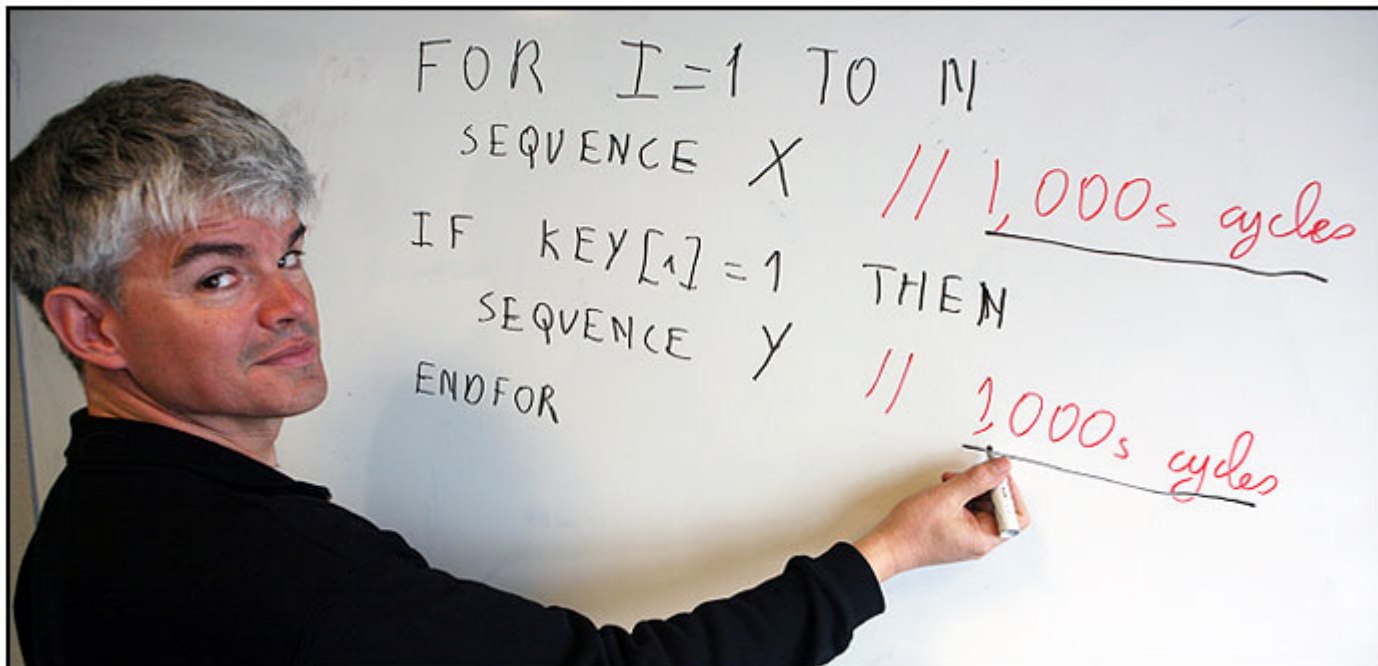 FOR I=1 TO N
SEQUENCE X // 1,000s cycles
IF KEY[1]=1 THEN
SEQUENCE Y // 1,000s cycles
ENDFOR